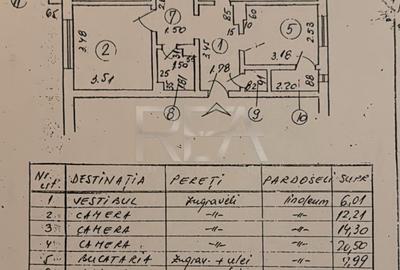 65
7
85
60
15
5
2.53
3.48
2
1.50
3.45
1
3.16
3.51
1.50
1.98
25
1.81
82
91
2.20
88
8
9
10
REA
Nr. crt. DESTINAȚIA PEREȚI PARDOSELI SUPR
1 VESTIBUL zugrăveli linoleum 6,01
2 CAMERA -"- -"- 12,21
3 CAMERA -"- -"- 14,30
4 CAMERA -"- -"- 20,50
5 BUCATARIA zugrav. + ulei -"- 7,99